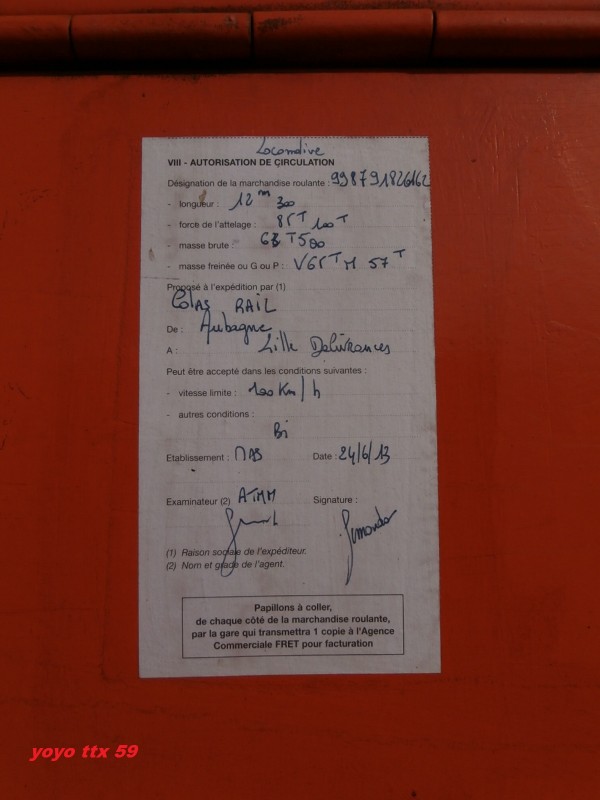 Locomotive
VIII - AUTORISATION DE CIRCULATION
Désignation de la marchandise roulante : 998791826162
- longueur : 12 m 300
- force de l'attelage : 85T 100T
- masse brute : 63 T 500
- masse freinée ou G ou P : V65T M 57T
Proposé à l'expédition par (1)
Colas RAIL
De : Aubagne
A : Lille Delivrances
Peut être accepté dans les conditions suivantes :
- vitesse limite : 100 Km/h
- autres conditions :
Bi
Etablissement : Date : 24/6/13
Examinateur (2) Signature :
(1) Raison sociale de l'expéditeur.
(2) Nom et grade de l'agent.
Papillons à coller,
de chaque côté de la marchandise roulante,
par la gare qui transmettra 1 copie à l'Agence
Commerciale FRET pour facturation
yoyo ttx 59